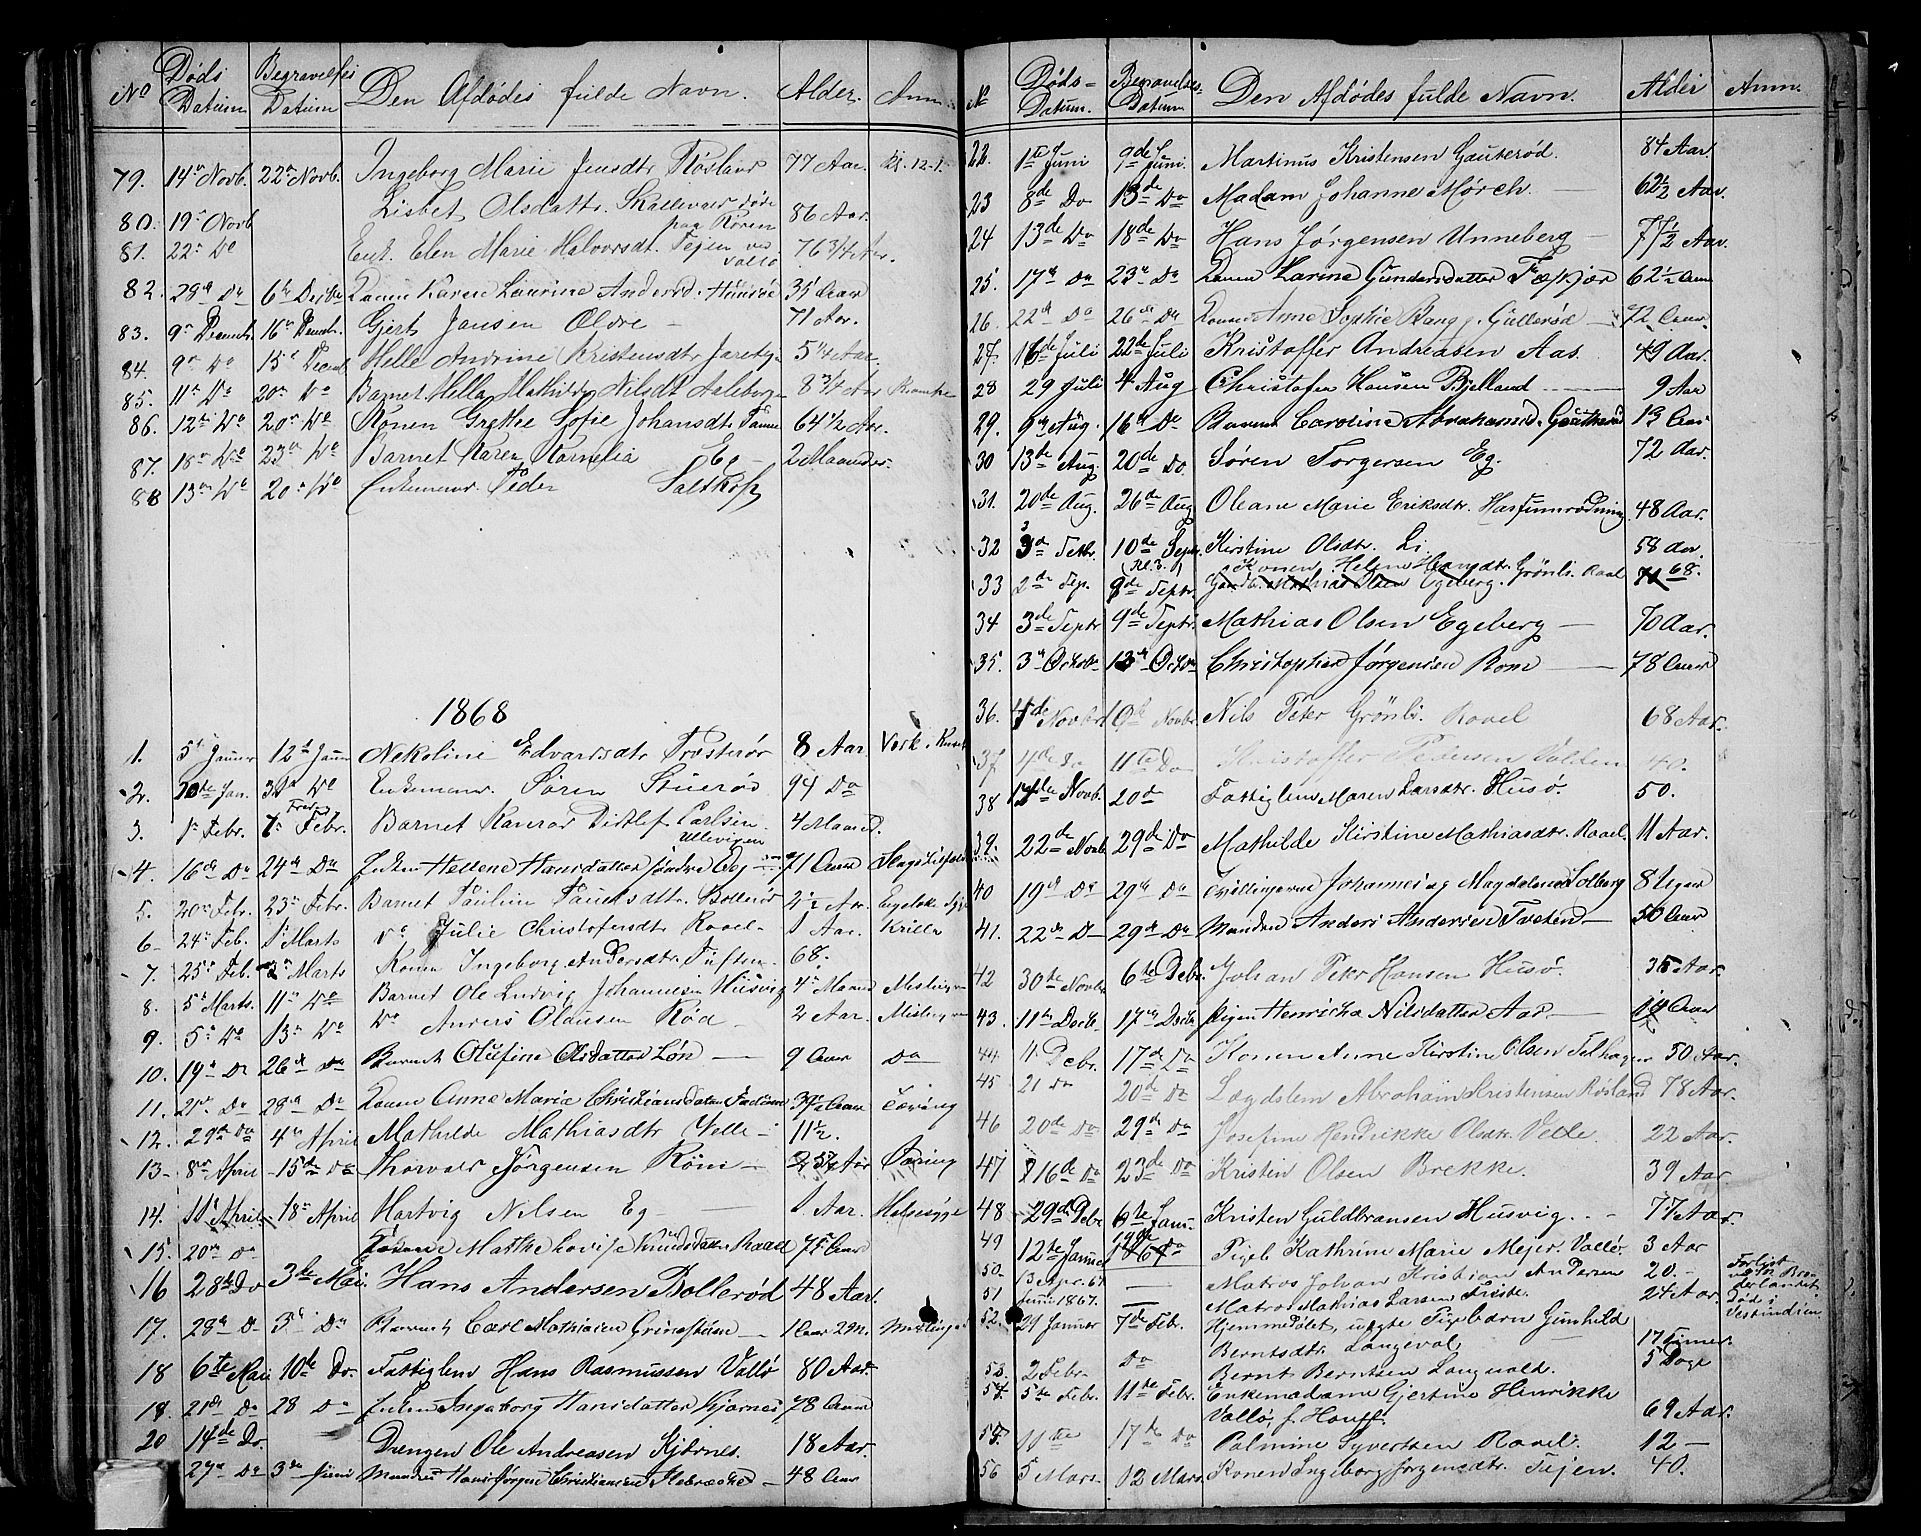 No Døds Datum Begravelses Datum Den Afdødes fulde Navn. Alder. Anm.
79. 14de Novb. 22de Novb. Ingeborg Marie Jensdtr Røsland 77 Aar. Kl. 12-1.
80. 19de Novb Lisbet Olsdattr. Skallevold døde paa Røren 86 Aar.
81. 22de Do Enk. Elen Marie Halvorsdt. Tejen ved Valløe 76 3/4 Aar.
82. 28de Do 6te Decbr Konen Karen Laurine Andersd. Husøe 35 Aar
83. 9de Decemb. 16de Decmb. Gjert Jansen Oldre - 71 Aar.
84. 9de Do 15de Decemb. Helle Andrine Kristensdtr 5 1/4 Aar
85. 11te Do 20de Do Barnet Hella Mathilde Nilsdt 8 3/4 Aar Krampe
86. 12te Do 20de Do Konen Grethe Sofie Johansdtr 64 1/2 Aar.
87. 18de Do 23de Do Barnet Karen Kornelia Eg - 2 Maaneder.
88 13de Do 20de Do Enkemand Peder Saltkop
1868
1. 5te Januar 12te Januar Nekoline Edvardsdtr Trosterød 8 Aar. Verk i
2. 20de Jan. 30de Do Enkemand. Søren Stuerød 94 Do
3. 1ste Febr. 7de Febr. Barnet Konrad Ditlef Carlsen Ullevigen 4 Maand.
4. 16de Do 24de Do Enken Hellene Hansdatter søndre Eeg 71 Aar
5. 20de Febr. 23de Febr. Barnet Pauline Paulsdtr Bollerød 2 1/2 Aar. Engelske Syge
6. 24de Feb. 1ste Marts Do Julie Christofersdtr Ravel - 1 Aar. Krille
7. 25de Feb. 2den Marts Konen Ingeborg Andersdtr Tuften. 68.
8. 5te Marts. 11te Do Barnet Ole Ludvig Johannesen Husvig 4 Maaned Mislinger
9. 5te Do 13de Do Do Anders Olausen Rød - 2 Aar. Mislinger
10. 19de Do 26de Do Barnet Olufine Olsdatter Løn - 9 Aar Do
11. 21de Do 28de Do Konen Anne Marie Christiansdatter Aar Tæring
12. 29de Do 4de April Mathilde Mathiasdtr Velle - 11 1/2.
13. 8de April 15de Do Thorvald Jørgensen Røm - Aar Tæring
14. 11te April 18de April Hartvig Nilsen Eg - 1 Aar. Halssyge
15. 20de Do Mathe Lovise Knudsdatter Raael 75 Aar
16 28de Do 3die Mai Hans Andersen Bollerød 48 Aar.
17. 28de Do 3die Do Barnet Carl Mathisen Grindstuen - 1 Aar 2 M.
18 6te Mai 10de Do. Fattiglem Hans Rasmussen Vallø 80 Aar.
18. 21de Do 28 Do Enken Ingeborg Hansdatter Gjernes 78 Aar
20 14de Do. Drengen Ole Andreasen Gjernes. 18 Aar.
27de Do 3die Juni Manden Hans Jørgen Christiansen - 48 Aar
No Døds-Datum. Begravelses-Datum Den Afdødes fulde Navn. Alder Anm.
22. 1ste Juni 9de Juni. Martinus Kristensen Gauterød. 84 Aar.
23 8de Do 13de Do Madam Johanne Mørch - 62 1/2 Aar.
24 13de Do 18de Do Hans Jørgensen Unneberg - 77 1/2 Aar.
25. 17de Do 23de Do Konen Larine Gundersdatter 62 1/2 Aar
26. 22de Do 26de Do Konen Anne Sophie Bang Gullerød - 72 Aar
27. 16de Juli 22de Juli Kristoffer Andreasen Aas. 49 Aar.
28 29 Juli 4 Aug Christofer Hansen Bjelland - 9 Aar
29. 9de Aug. 16de Do Barnet Caroline Abrahamsd. Gauterød 13 Aar
30 13de Aug. 20de Do. Søren Torgersen Eg. 72 Aar.
31. 20de Aug. 26de Aug Oleane Marie Eriksdtr. Hasfumrødning. 48 Aar.
32 3de Febr. 10de Sept. Kirstine Olsdtr. Li. 58 Aar.
33 2de Sep. 9de Septr. Konen Helene Hansdtr. Grønli. Raael Mathias Olsen Egeberg. 71 68.
34 3de Septr 9de Septr. Mathias Olsen Egeberg - 70 Aar.
35. 3de Octobr 13de Octbr Christopher Jørgensen Rom - 78 Aar
36. 4de Novbr 10de Novbr. Nils Peter Grønli. Ravel 68 Aar.
37 4de Do 11te Do Kristoffer Pedersen Volden 40.
38 17de Novb. 20de Fattiglem Maren Larsdtr. Husø. 50.
39. 22de Novb 29de Do Mathilde Kirstine Mathiasdtr. Raael. 11 Aar.
40 19de Do 29de Do Tvillingerne Johannes og Magdalene Solberg 8 Uger
41. 22de D- 29de Do Manden Anders Andersen - 50 Aar
42 30te Novbr 6te Debr. Johan Peter Hansen Husø. 35 Aar.
43. 11te Decbr. 17de Decbr Pigen Henrikka Nilsdatter Aas - 19 Aar
44 11 Debr. 17de Do Konen Anne Kirstine Olsen Felhagen 50 Aar.
45 21 Do 20de Do Lægdslem Abraham Kristensen Røsland 78 Aar.
46 20de Do 29de Do Josefine Hendrikke Olsdtr. Velle. 22 Aar.
47 16de Do 23de Do Kristin Olsen Brekke. 39 Aar
48 29de Debr 6te Jan. Kristen Guldbransen Husvig. - 77 Aar.
49 12te Januar Pigeb. Kathrine Marie Mejer. Vallø. 3 Aar
50. 13 Apr. 67 - Matros Johan Kristian Andersen 20.- Forlist
51 Juni 1867. - Matros Mathias Larsen 24 Aar. Død i Vestindien
52. 21 Januar 7de Febr. Hjemmedøbt, uægte Pigebarn Gunhild Berntsdtr. Langeval. 17 Timer.
53. 2 Febr. Do Bernt Berntsen Langvald. 5 Dage
54. 5te Febr. 11te Febr. Enkemadame Gjertine Henrikke Vallø, f. Houff. 69 Aar.
55. 11te 17de Do Palmine Syvertsen Ravel. 12 -
56 5 Mars. 12 Mars. Konen Ingeborg Jørgensdtr. Tejen. 40.